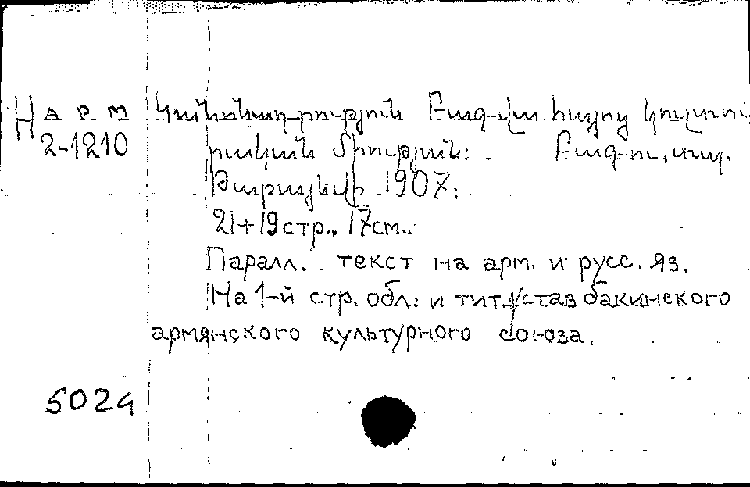 Н арм Կանոնադրություն Բագվա հայոց կուլտու
2-1210 րական միության: Բագու, տպ.
1907.
21+19 стр., 17см.
Паралл. текст на арм. и русс. яз.
На 1-й стр. обл. и тит. устав бакинского
армянского культурного союза.
5024